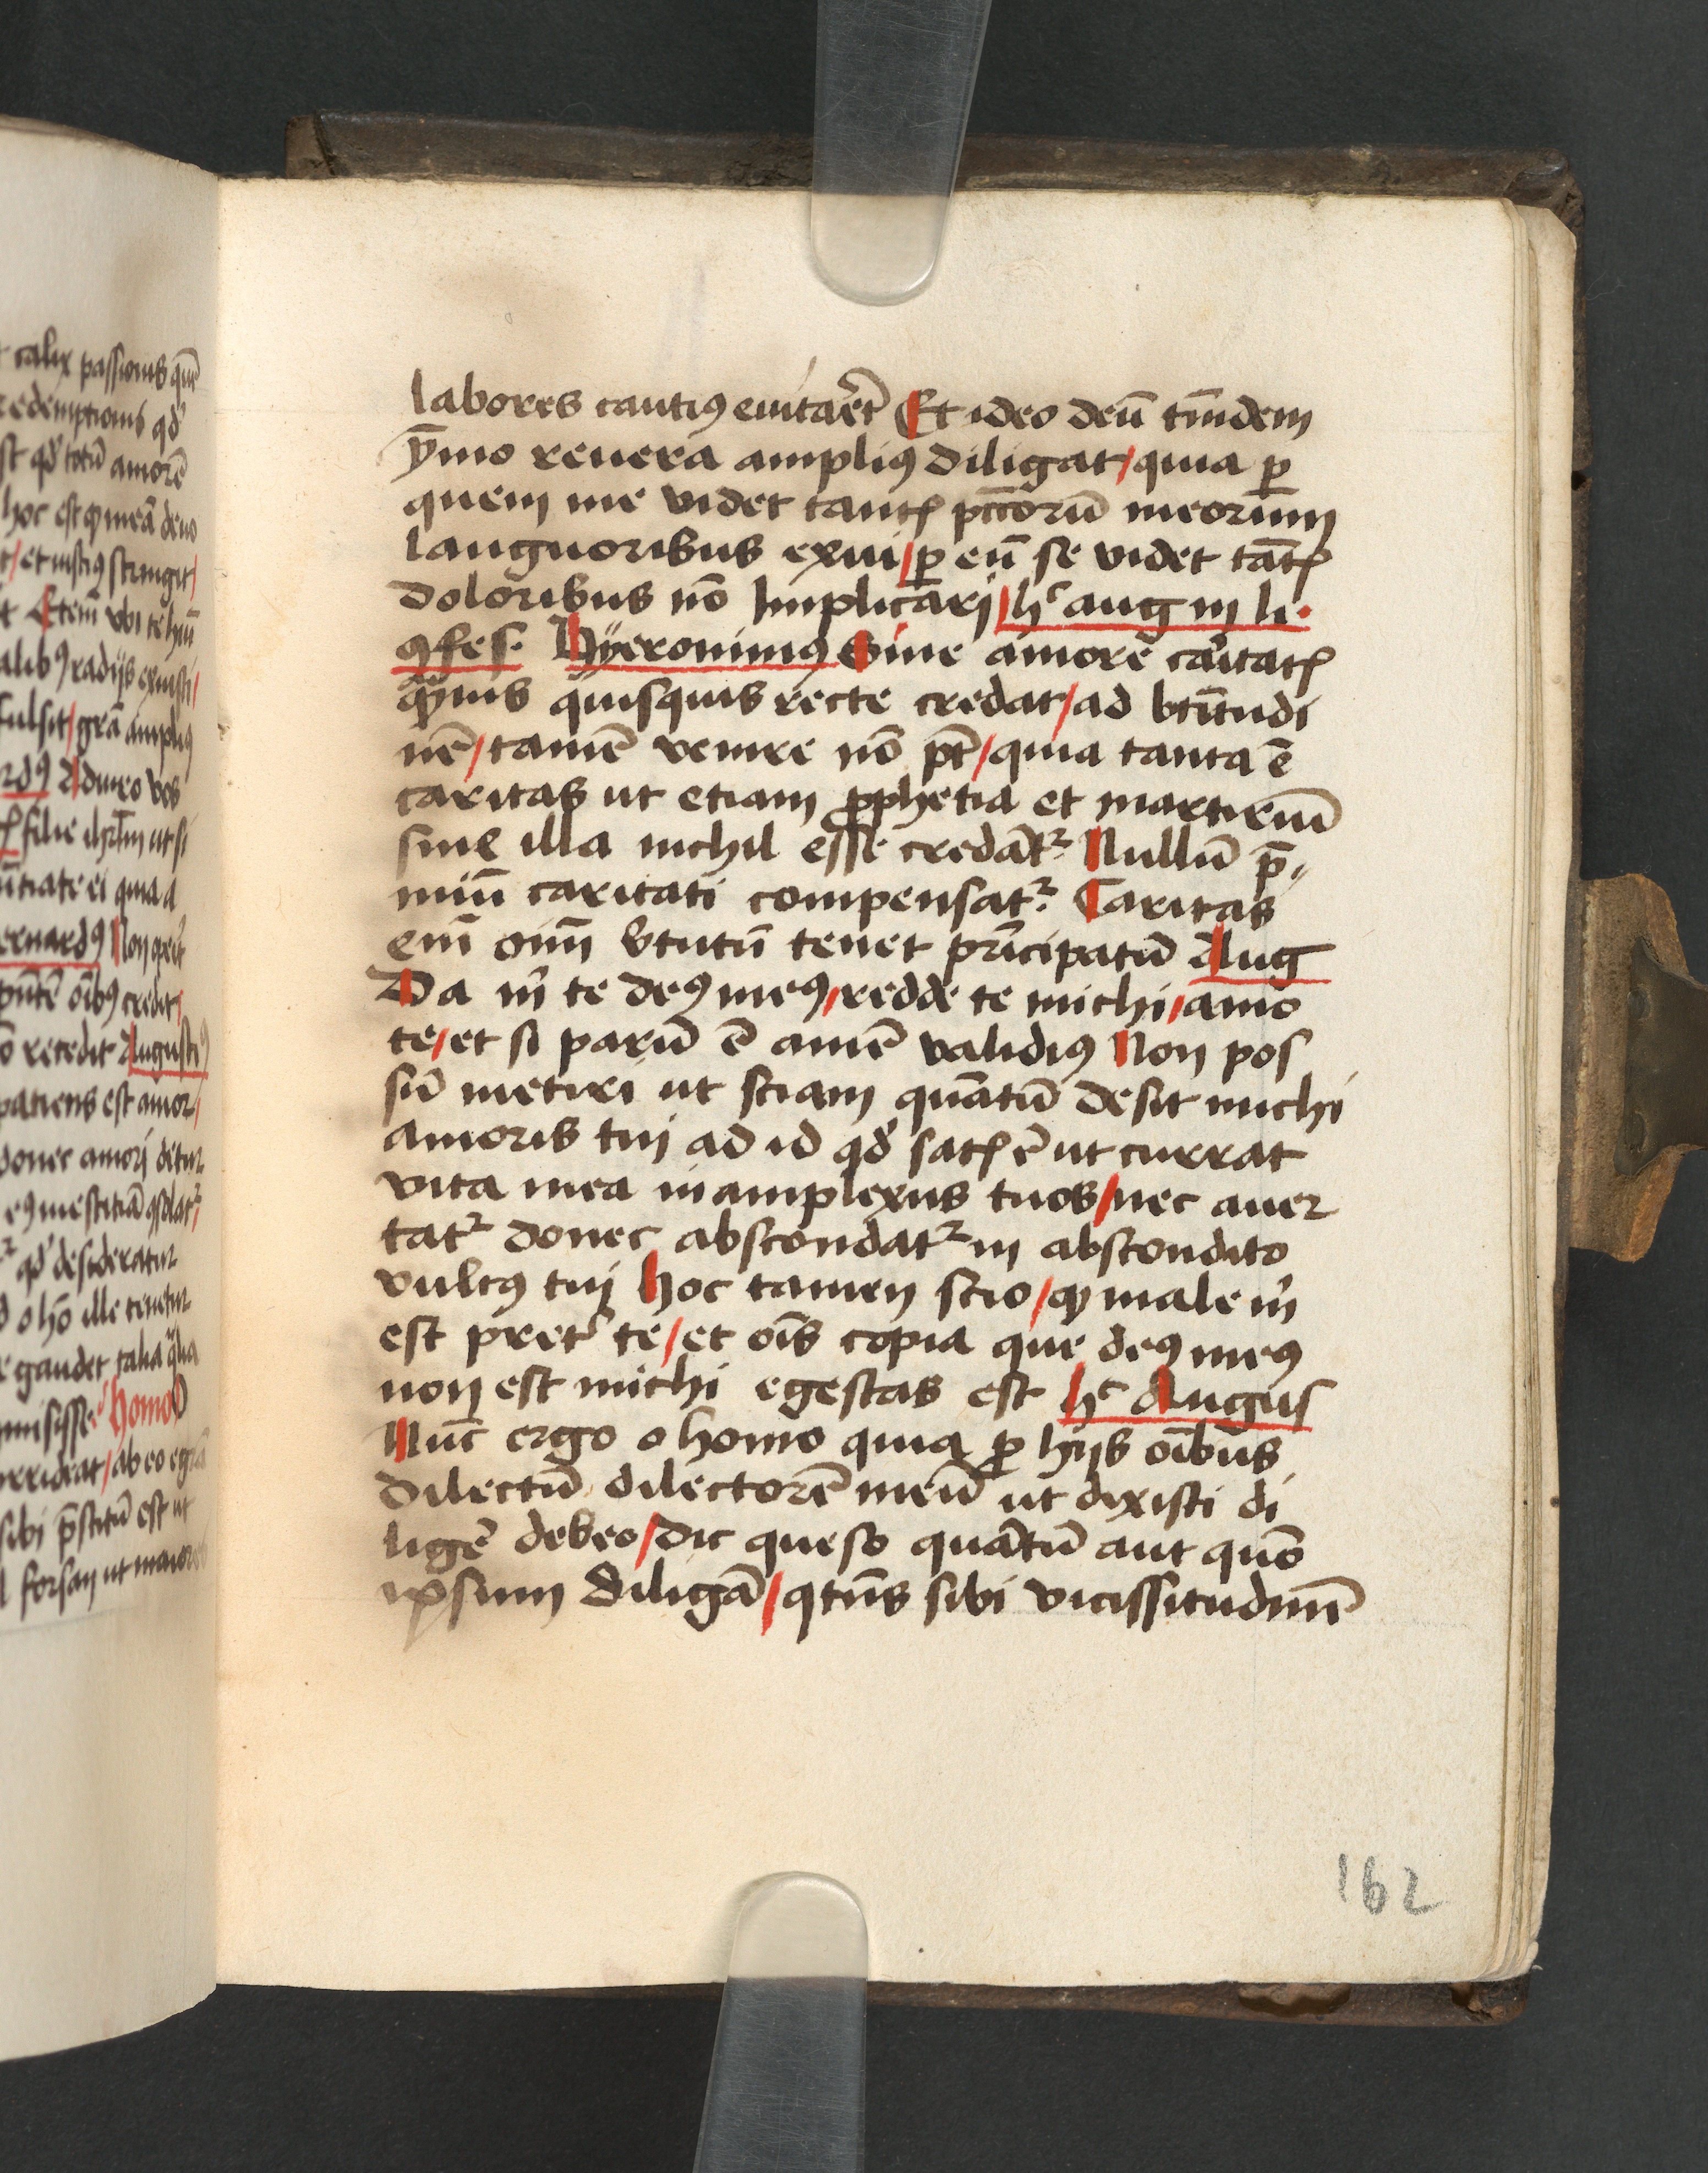 t calix passionis quē
redemptionis qđ
st qđ totū amorē
hoc est ꝙ meā deus
t / et iustiꝰ stringit /
alibꝰ radijs exuisti /
fulsit / grā ampliꝰ
rdꝰ Adiuro vos
filie ihrlm ut si
ūtiate ei quia a
ernardꝰ Non
pn̄tē oībꝰ credit /
recedit Augusti
patiens est amor /
donec amori detur
qđ desideratur
o hō ille tenetur
e gaudet talia q̄lia
misisse Homo O
sibi p̄stitū est ut
l forsan ut maior
labores cautiꝰ euitarēt Et ideo deū tm̄dem
ȳmo reuera ampliꝰ diligat / quia ꝑ
quem me videt tantꝭ pcc̄orū meorum̄
languoribus exui / ꝑ eū se videt tātꝭ
doloribus nō Implicari / hᶜ aug in li·
ꝯfes· Hÿeronimꝰ Sine amore caritatꝭ
qͣmuis quisquis recte credat / ad bt̄itudi
nē / tamē venire nō pt̄ / quia tanta ē
caritas ut etiam ꝓphetia et martiriū
sine illa nichil esse credātᷣ Nullū p̄
miū caritati compensatᷣ Caritas
em̄ oīm v̓tutū tenet pͥncipatū Aug
Da mͥ te deꝰ meꝰ / redde te michi / amo
te / et si parū ē amē validiꝰ Non pos
sū metiri ut sciam quātū desit michi
amoris tui ad id qđ satꝭ ē ut currat
vita mea in amplexus tuos / nec auer
tatᷣ donec abscondatᷣ in abscondito
vultꝰ tui Hoc tamen scio / ꝙ male mͥ
est pret̓ te / et oīs copia que deꝰ meꝰ
non est michi egestas est hᶜ Augus
Nūc ergo o homo quia ꝓ hijs oībus
dilectū dilectorē meū ut dixisti di
ligē debeo / dic queso quātū aut quō
ipsum diligā / qtn̄s sibi vicissitudinē
162